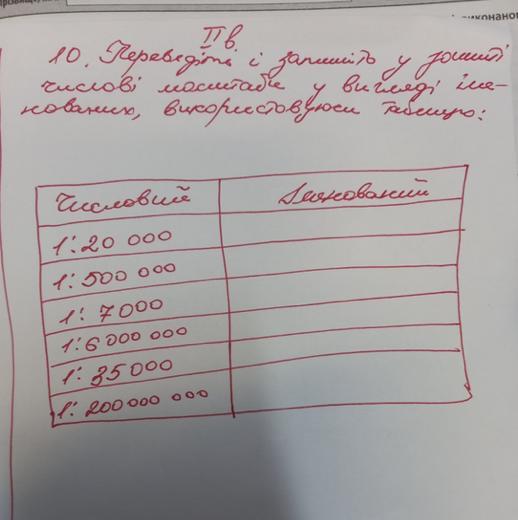 виконаног
IIв.
10. Переведіть і запишіть у зошиті
числові масштаби у вигляді іме-
нованих, використовуючи таблицю:
Числовий Іменований
1:20 000
1:500 000
1:7000
1:6 000 000
1:35000
1:200 000 000